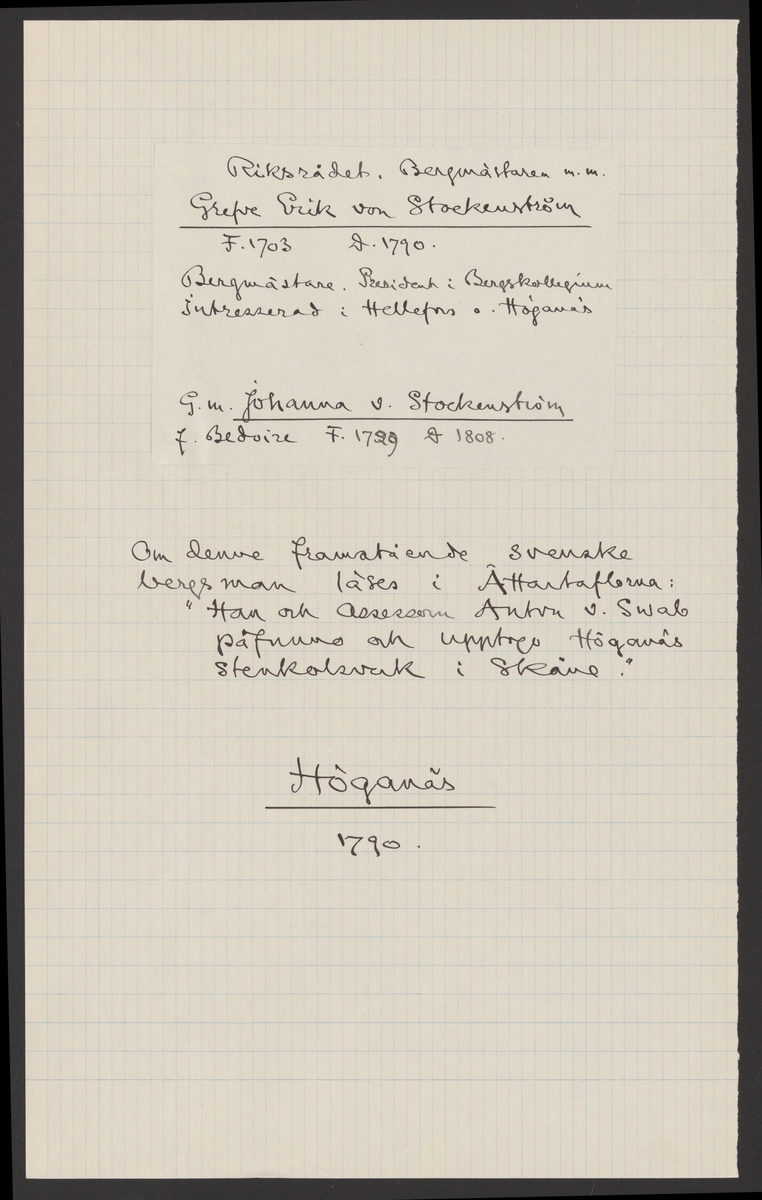 Riksrådet. Bergmästaren m.m.
Grefve Erik von Stockenström
F. 1703 D. 1790.
Bergmästare. President i Bergskollegium
Intresserad i Hellefors o. Höganäs
G. m. Johanna v. Stockenström
f. Bedoire F. 1729 D 1808.
Om denne framstående svenske
bergsman läses i Ättartaflorna:
"Han och assessorn Anton v. Swab
påfunno och upptogo Höganäs
Stenkolsverk i Skåne."
Höganäs
1790.